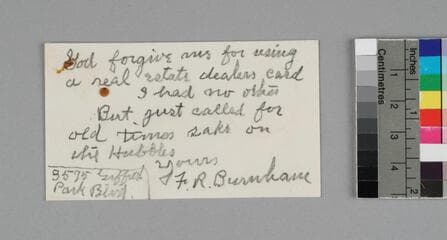 God forgive me for using
a real estate dealers card
I had no other
But just called for
old times sake on
the Hubbles
Yours
F. R. Burnham
3535 Griffith
Park Blvd.
Centimetres
Inches
1
2
3
4
5
1
2